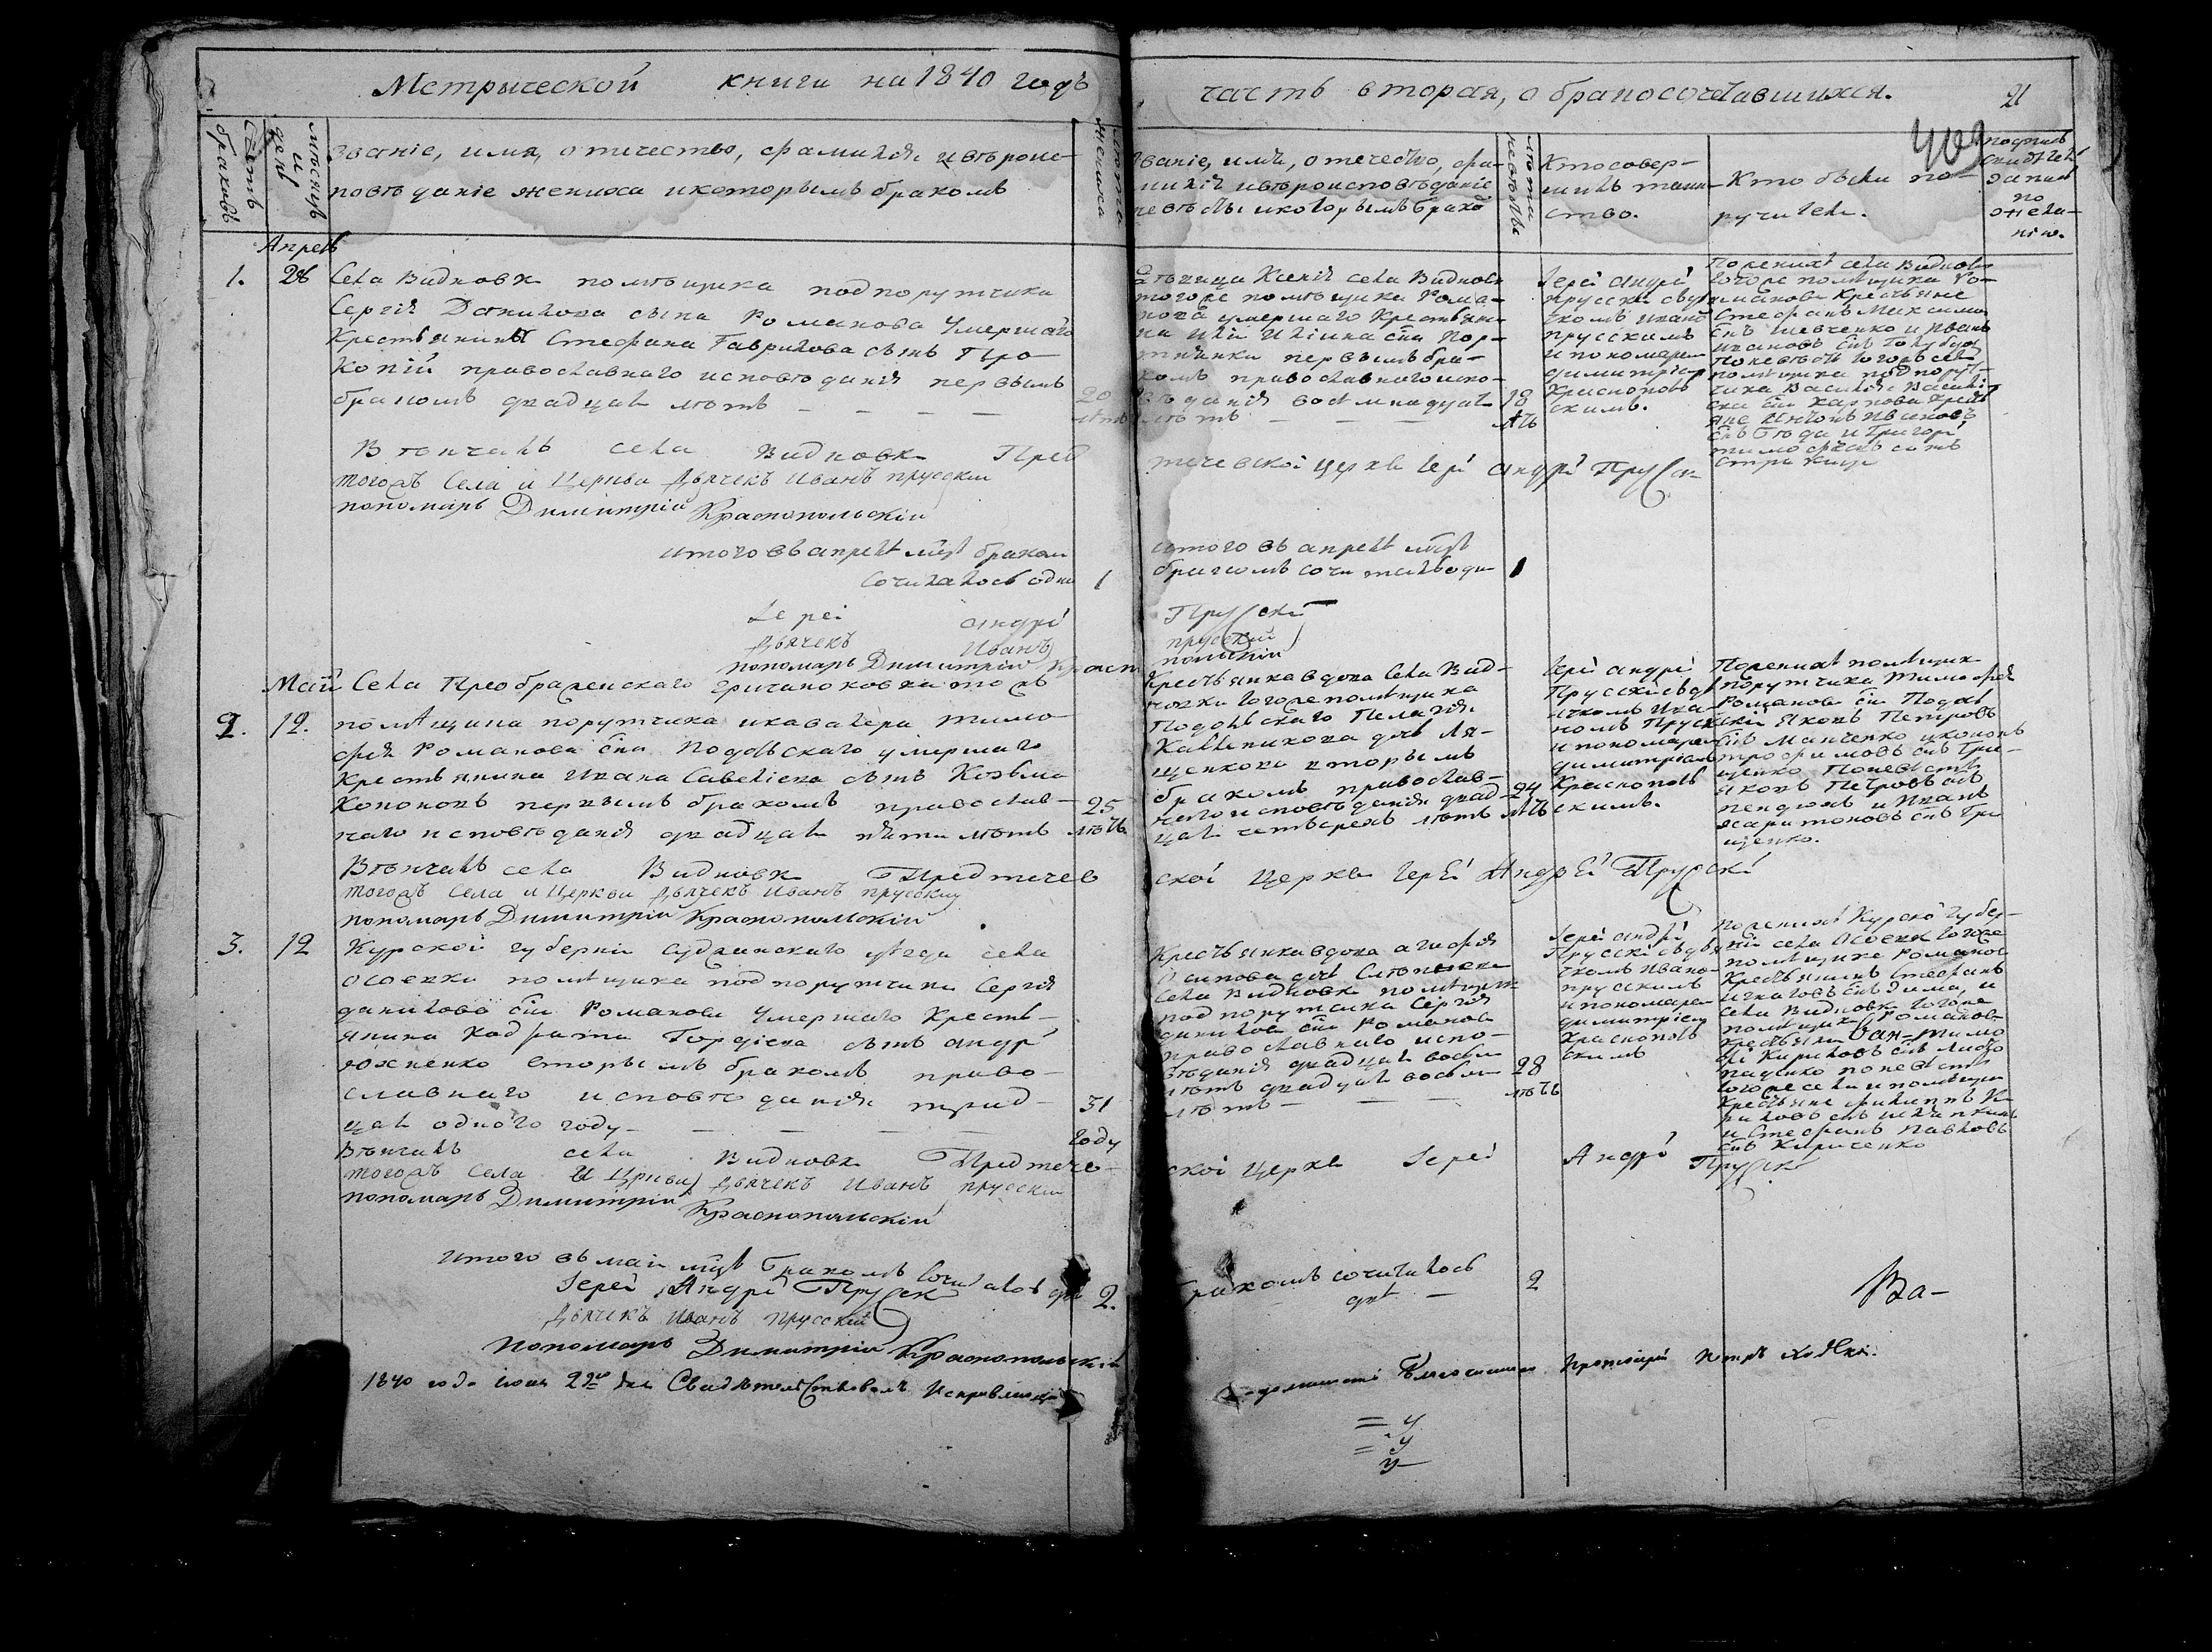 Метрической книги на 1840 годъ
часть вторая, о бракосочетавшихся.
21
409
Счетъ браковъ
мѣсяцъ и день
Званіе, имя, отечество, фамилія и вѣроис-
повѣданіе жениха и которымъ бракомъ
лѣта жениха
Званіе, имя, отечество, фа-
милія и вѣроисповѣданіе
невѣсты и которымъ брако
лѣта невѣсты
Кто совер-
шилъ таин-
ство.
Кто были по-
ручители.
подпись
свидѣтел
записи
по
жела-
нію.
Апрель
1.
28
Села Видновк помѣщика подпорутчика
Сергія Данилова сына Романова умершаго
Крестьянина Стефана Гаврилова сынъ Про-
копій православнаго исповѣданія первымъ
бракомъ двадцат лѣтъ
20
лѣтъ
дѣвица Ксенія села Видновк
тогоже помѣщика Рома-
нова умершаго Крестьяни
на Иліи Иліина сна Пор-
первымъ бра-
комъ православнаго испо-
вѣданія восемнадцат
лѣтъ
18
лѣтъ
Іерей Андрей
Пруски съ дья
чкомъ Ивано
Прускимъ
и пономарем
Димитріем
Краснополь
скимъ.
По женихѣ села Видновк
тогоже помѣщика Ро-
манова Крестьяне
Стефанъ Максимо
снъ Шевченко и Иванъ
Ивановъ снъ Голубу
по невѣстѣ тогожъ села
помѣщика подпорут-
чика Василія Василі
ева сна Карпова Крест
яне Антонъ Ивановъ
снъ Бѣда и Григорі
Тимофѣевъ сынъ
Вѣнчалъ села Видновк Пред
течевской церкви Іерей Андрей Пруски
тогожъ Села и Церкви Дьячекъ Иванъ Прусскій
пономарь Димитрій Краснопольскій
итого въ апрелѣ мцѣ браком
сочиталось один
1
итого въ апрелѣ мцѣ
бракомъ сочиталось оди
1
Іерей Андрей
Пруский
Дьячекъ Иванъ
прусский
пономарь Димитрій Красно
польскій
Май
2.
12.
Села Преображенскаго Гричановка тожъ
помѣщика порутчика и кавалера Тимо-
фея Романова сна Подольскаго умершаго
Крестьянина Ивана Савелиева сынъ Козьма
Кононовъ первымъ бракомъ православ-
наго исповѣданія двадцат пяти лѣтъ
25
лѣтъ
Крестьянка вдова села Вид-
новки тогоже помѣщика
Подольскаго Пелагія
Каленикова дочь Ля-
щенкова вторымъ
бракомъ православ-
наго исповѣданія двад-
цат четырехъ лѣтъ
24
лѣтъ
Іерей Андрей
Пруски съ дья
чкомъ Ива-
номъ Прускимъ
и пономарем
Димитріемъ
Краснополь
скимъ.
По женихѣ помѣщик
порутчика Тимофея
Романова сна Подол
Яковъ Петровъ
снъ Манченко и Кононъ
Трофимовъ снъ Гри-
щенко По невѣстѣ
Яковъ Петровъ снъ
и Иванъ
Харитоновъ снъ Гри
щенко.
Вѣнчалъ села Видновк Предтечев
ской Церкви Іерей Андрей Пруски
тогожъ Села и Церкви Дьячекъ Иванъ прусскій
пономарь Димитрій Краснопольскій
3.
12
Курской губерніи Суджанскаго уезда села
Осоевки помѣщика подпорутчика Сергія
Данилова сна Романова умершаго Кресть-
янина Кодрата Гордіева сынъ Андрей
Юхненко вторымъ бракомъ право-
славнаго исповѣданія трид-
цат одного году
31
году
Крестьянка вдова Агафія
Осипова дочь
села Видновк помѣщик
подпорутчика Сергія
Данилова сна Романова
православнаго испо-
вѣданія двадцат восьм
лѣтъ двадцат восьми
лѣтъ
28
лѣтъ
Іерей Андрей
Пруски съ дья
чкомъ Ивано-
прускимъ
и пономарем
Димитріем
Краснополь
скимъ
По женихѣ Курской губер-
ніи села Осоевк тогоже
помѣщика Романова
Крестьянинъ Стефанъ
Игнатовъ снъ Зима, и
села Видновк тогоже
помѣщика Романова
Крестьянин Тимо
фей Кириловъ снъ
по невѣстѣ
тогоже села и помѣщик
Крестьяне Филиппъ Ки
риловъ снъ
и Стефанъ Павловъ
снъ Кириченко
Вѣнчалъ села Видновк Предтече-
ской церкви Іерей Андрей Пруски
тогожъ Села и Церкви Дьячекъ Иванъ прусскій
пономарь Димитрій Краснопольскій
Итого въ маи мцѣ бракомъ сочиталось два
2.
бракомъ сочиталось
два
2
Іерей Андрей Пруски
Дьячекъ Иванъ Прусскій
Пономарь Димитрій Краснопольскій
Ва-
1840 года июня 29го дня Свидѣтельствовалъ Исправляющ
должность Благочиннаго Протоіерей Петръ